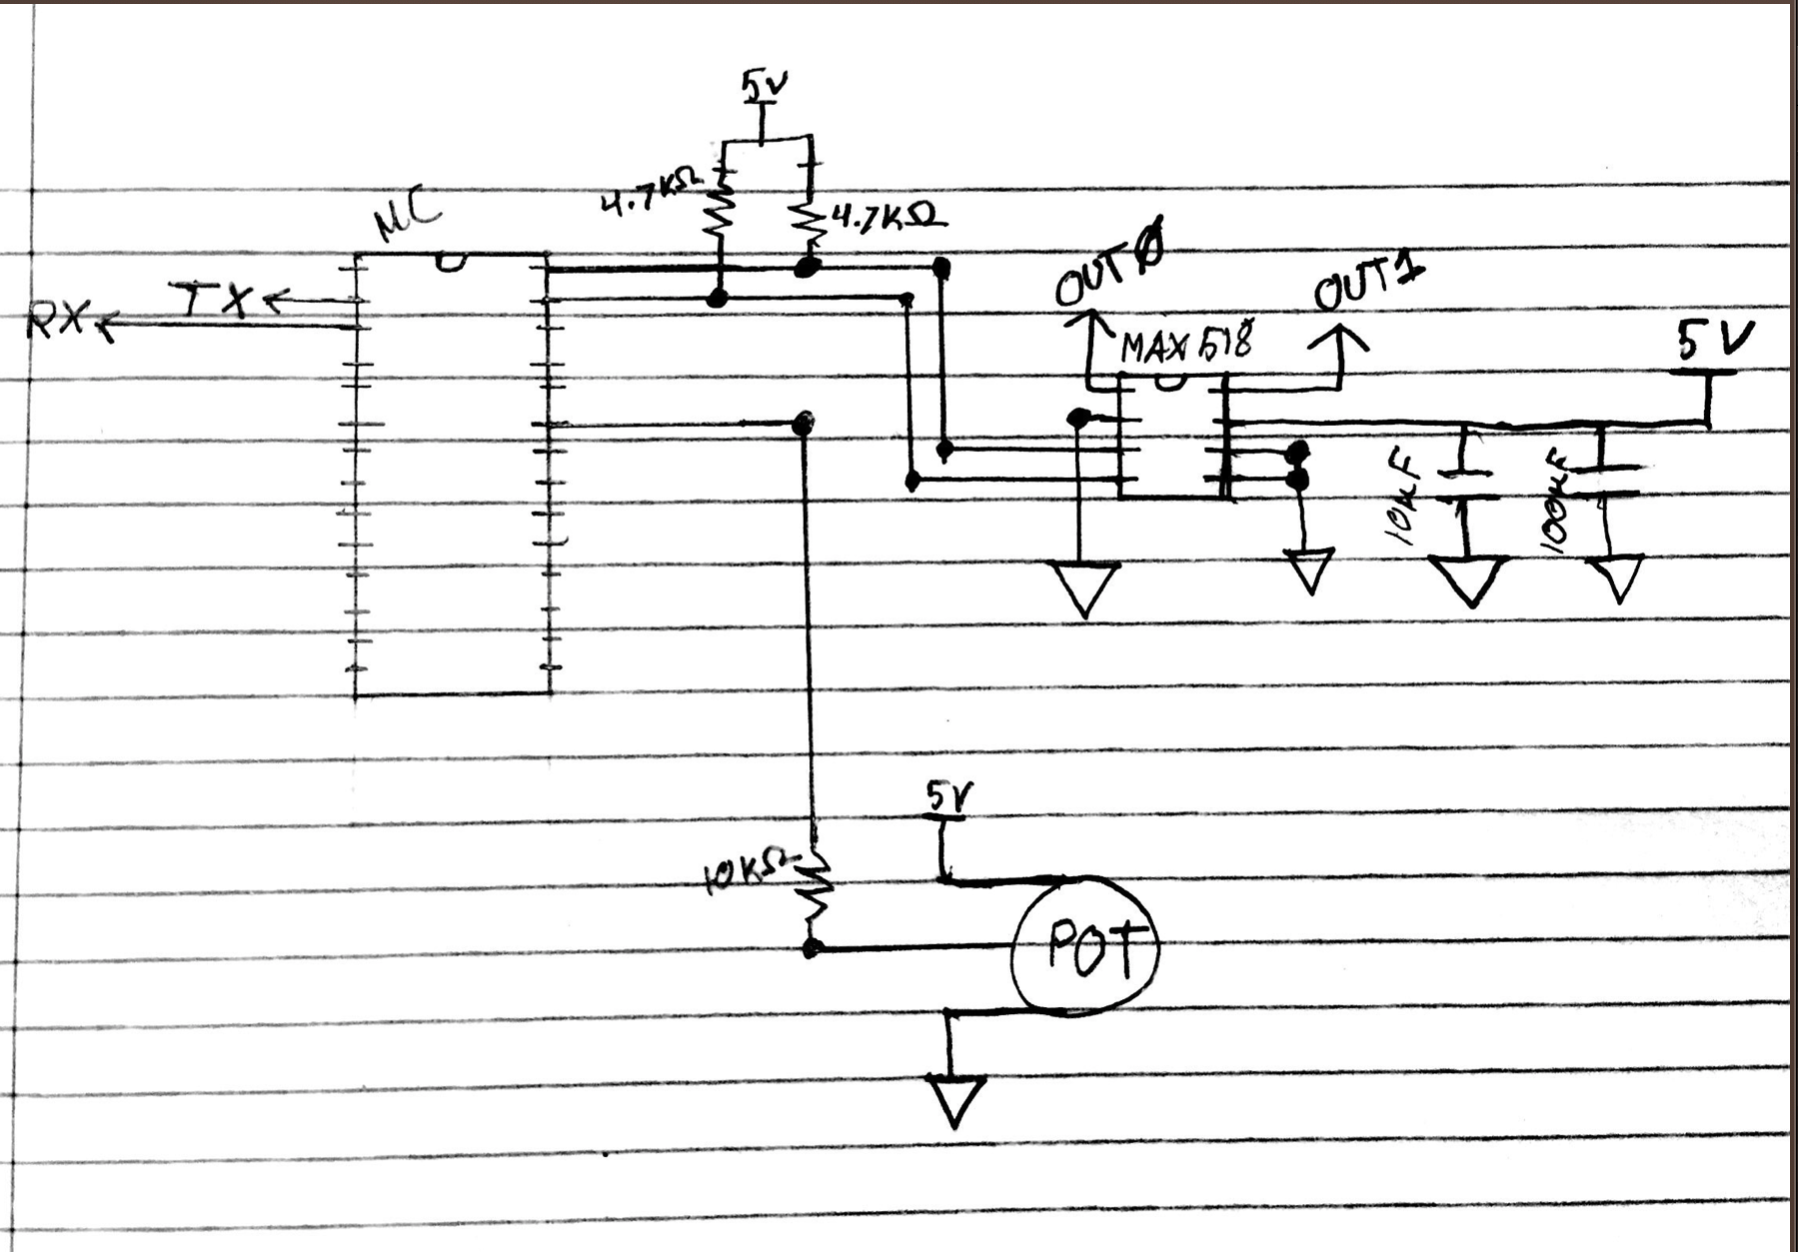 5V
4.7KΩ
4.7KΩ
μC
TX
RX
OUT0
OUT1
MAX518
5V
10μF
100μF
5V
10KΩ
POT